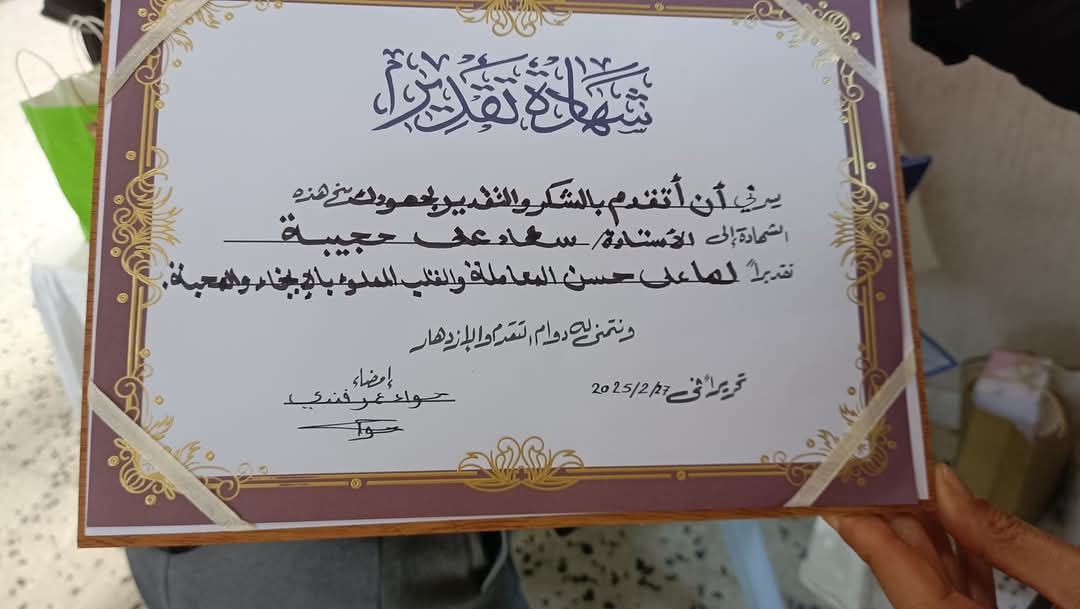 شهادة تقدير
يسرني أن أتقدم بالشكر والتقدير بمنح هذه
الشهادة إلى الأستاذة/ سعاد على حجيبة
تقديراً لها على حسن المعاملة والقلب المملوء بالإخاء والمحبة.
ونتمنى له دوام التقدم والإزدهار
تحريراً في 2025/2/27
إمضاء
حواء عمر فندي
حواء